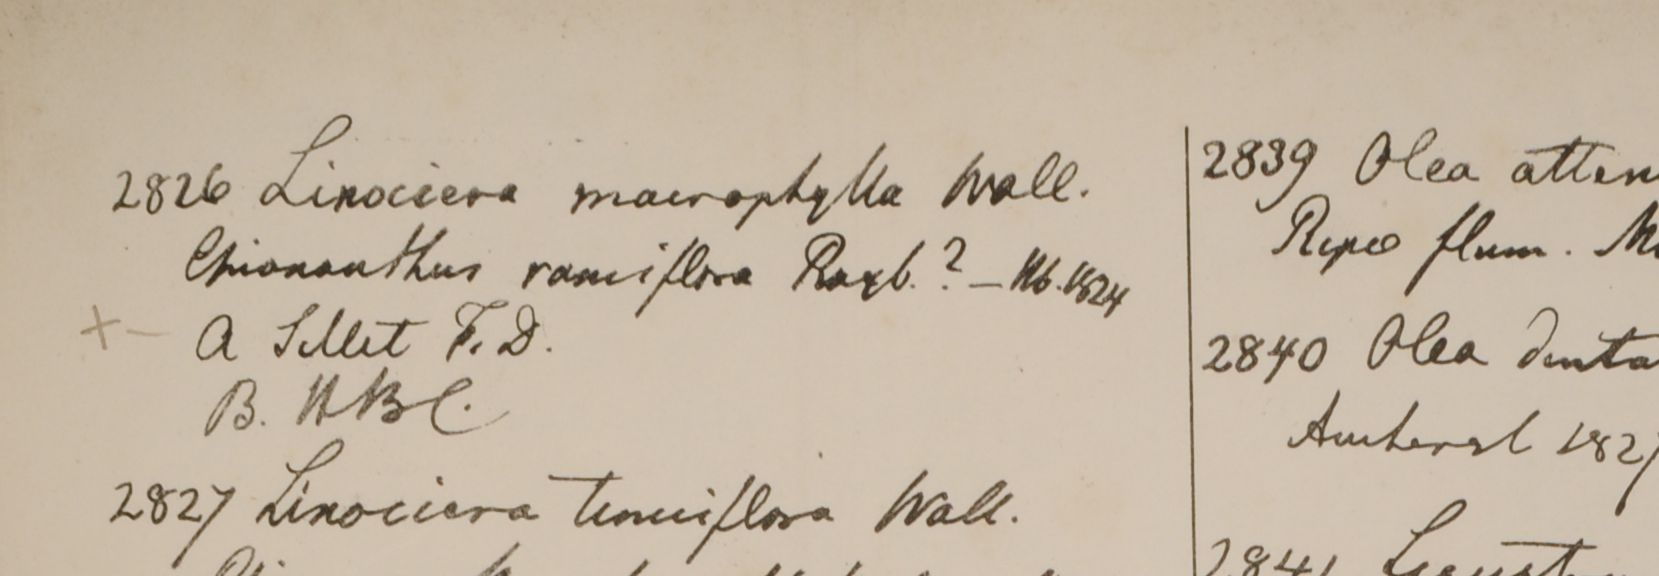 2826 Linociera macrophylla Wall.
Chionanthus ramiflora Roxb. ? — Hb. 1824
+ — A Sillet F. D.
B. HBC.
2827 Linociera tenuiflora Wall.
2839 Olea atten
Ripæ flum. M
2840 Olea denta
Amherst 1827
2841